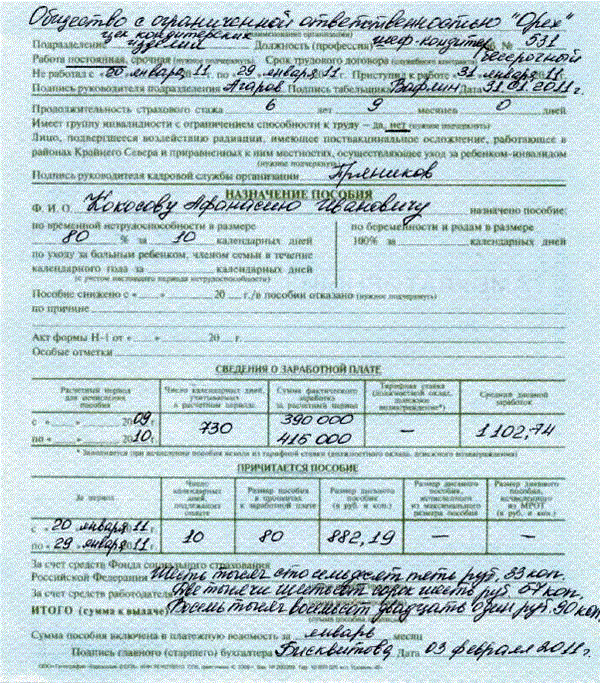 Общество с ограниченной ответственностью "Орех"
цех кондитерских
Подразделение изделий Должность (профессия) шеф-кондитер № 531
Работа постоянная, срочная (нужное подчеркнуть) Срок трудового договора (служебного контракта) бессрочный
Не работал с «20 января 2011 г. по «29» января 2011 г. Приступил к работе 31 января 2011 г.
Подпись руководителя подразделения Агаров Подпись табельщика Вафлин Дата 31.01.2011г
Продолжительность страхового стажа 6 лет 9 месяцев 0 дней
Имеет группу инвалидности с ограничением способности к труду – да, нет (нужное подчеркнуть)
Лицо, подвергшееся воздействию радиации, имеющее поствакцинальное осложнение, работающее в
районах Крайнего Севера и приравненных к ним местностях, осуществляющее уход за ребенком-инвалидом
(нужное подчеркнуть)
Подпись руководителя кадровой службы организации Пряников
НАЗНАЧЕНИЕ ПОСОБИЯ
Ф. И. О. Кокосову Афанасию Ивановичу назначено пособие:
по временной нетрудоспособности в размере
80 % за 10 календарных дней
по уходу за больным ребенком, членом семьи в течение
календарного года за календарных дней
(с учетом настоящего периода нетрудоспособности)
по беременности и родам в размере
100% за календарных дней
Пособие снижено с « » 20 г./в пособии отказано (нужное подчеркнуть)
по причине
Акт формы Н-1 от « » 20 г.
Особые отметки
СВЕДЕНИЯ О ЗАРАБОТНОЙ ПЛАТЕ
Расчетный период для исчисления пособия
Число календарных дней, учитываемых в расчетном периоде
Сумма фактического заработка за расчетный период
Тарифная ставка (должностной оклад, денежное вознаграждение*)
Средний дневной заработок
с « » 2009 г. 730 390 000 — 1102,74
по « » 2010 г. 415 000
* Заполняется при исчислении пособия исходя из тарифной ставки (должностного оклада, денежного вознаграждения)
ПРИЧИТАЕТСЯ ПОСОБИЕ
За период
Число календарных дней, подлежащих оплате
Размер пособия в процентах к заработной плате
Размер дневного пособия (в руб. и коп.)
Размер дневного пособия, исчисленного из максимального размера пособия
Размер дневного пособия, исчисленного из МРОТ (в руб. и коп.)
с «20 января 2011 г. 10 80 882,19 — —
по «29» января 2011 г.
За счет средств Фонда социального страхования
Российской Федерации Шесть тысяч сто семьдесят пять руб. 33 коп.
За счет средств работодателя Две тысячи шестьсот сорок шесть руб. 57 коп.
ИТОГО (сумма к выдаче) Восемь тысяч восемьсот двадцать один руб. 90 коп.
Сумма пособия включена в платежную ведомость за январь месяц
Подпись главного (старшего) бухгалтера Бисквитова Дата 03 февраля 2011 г.